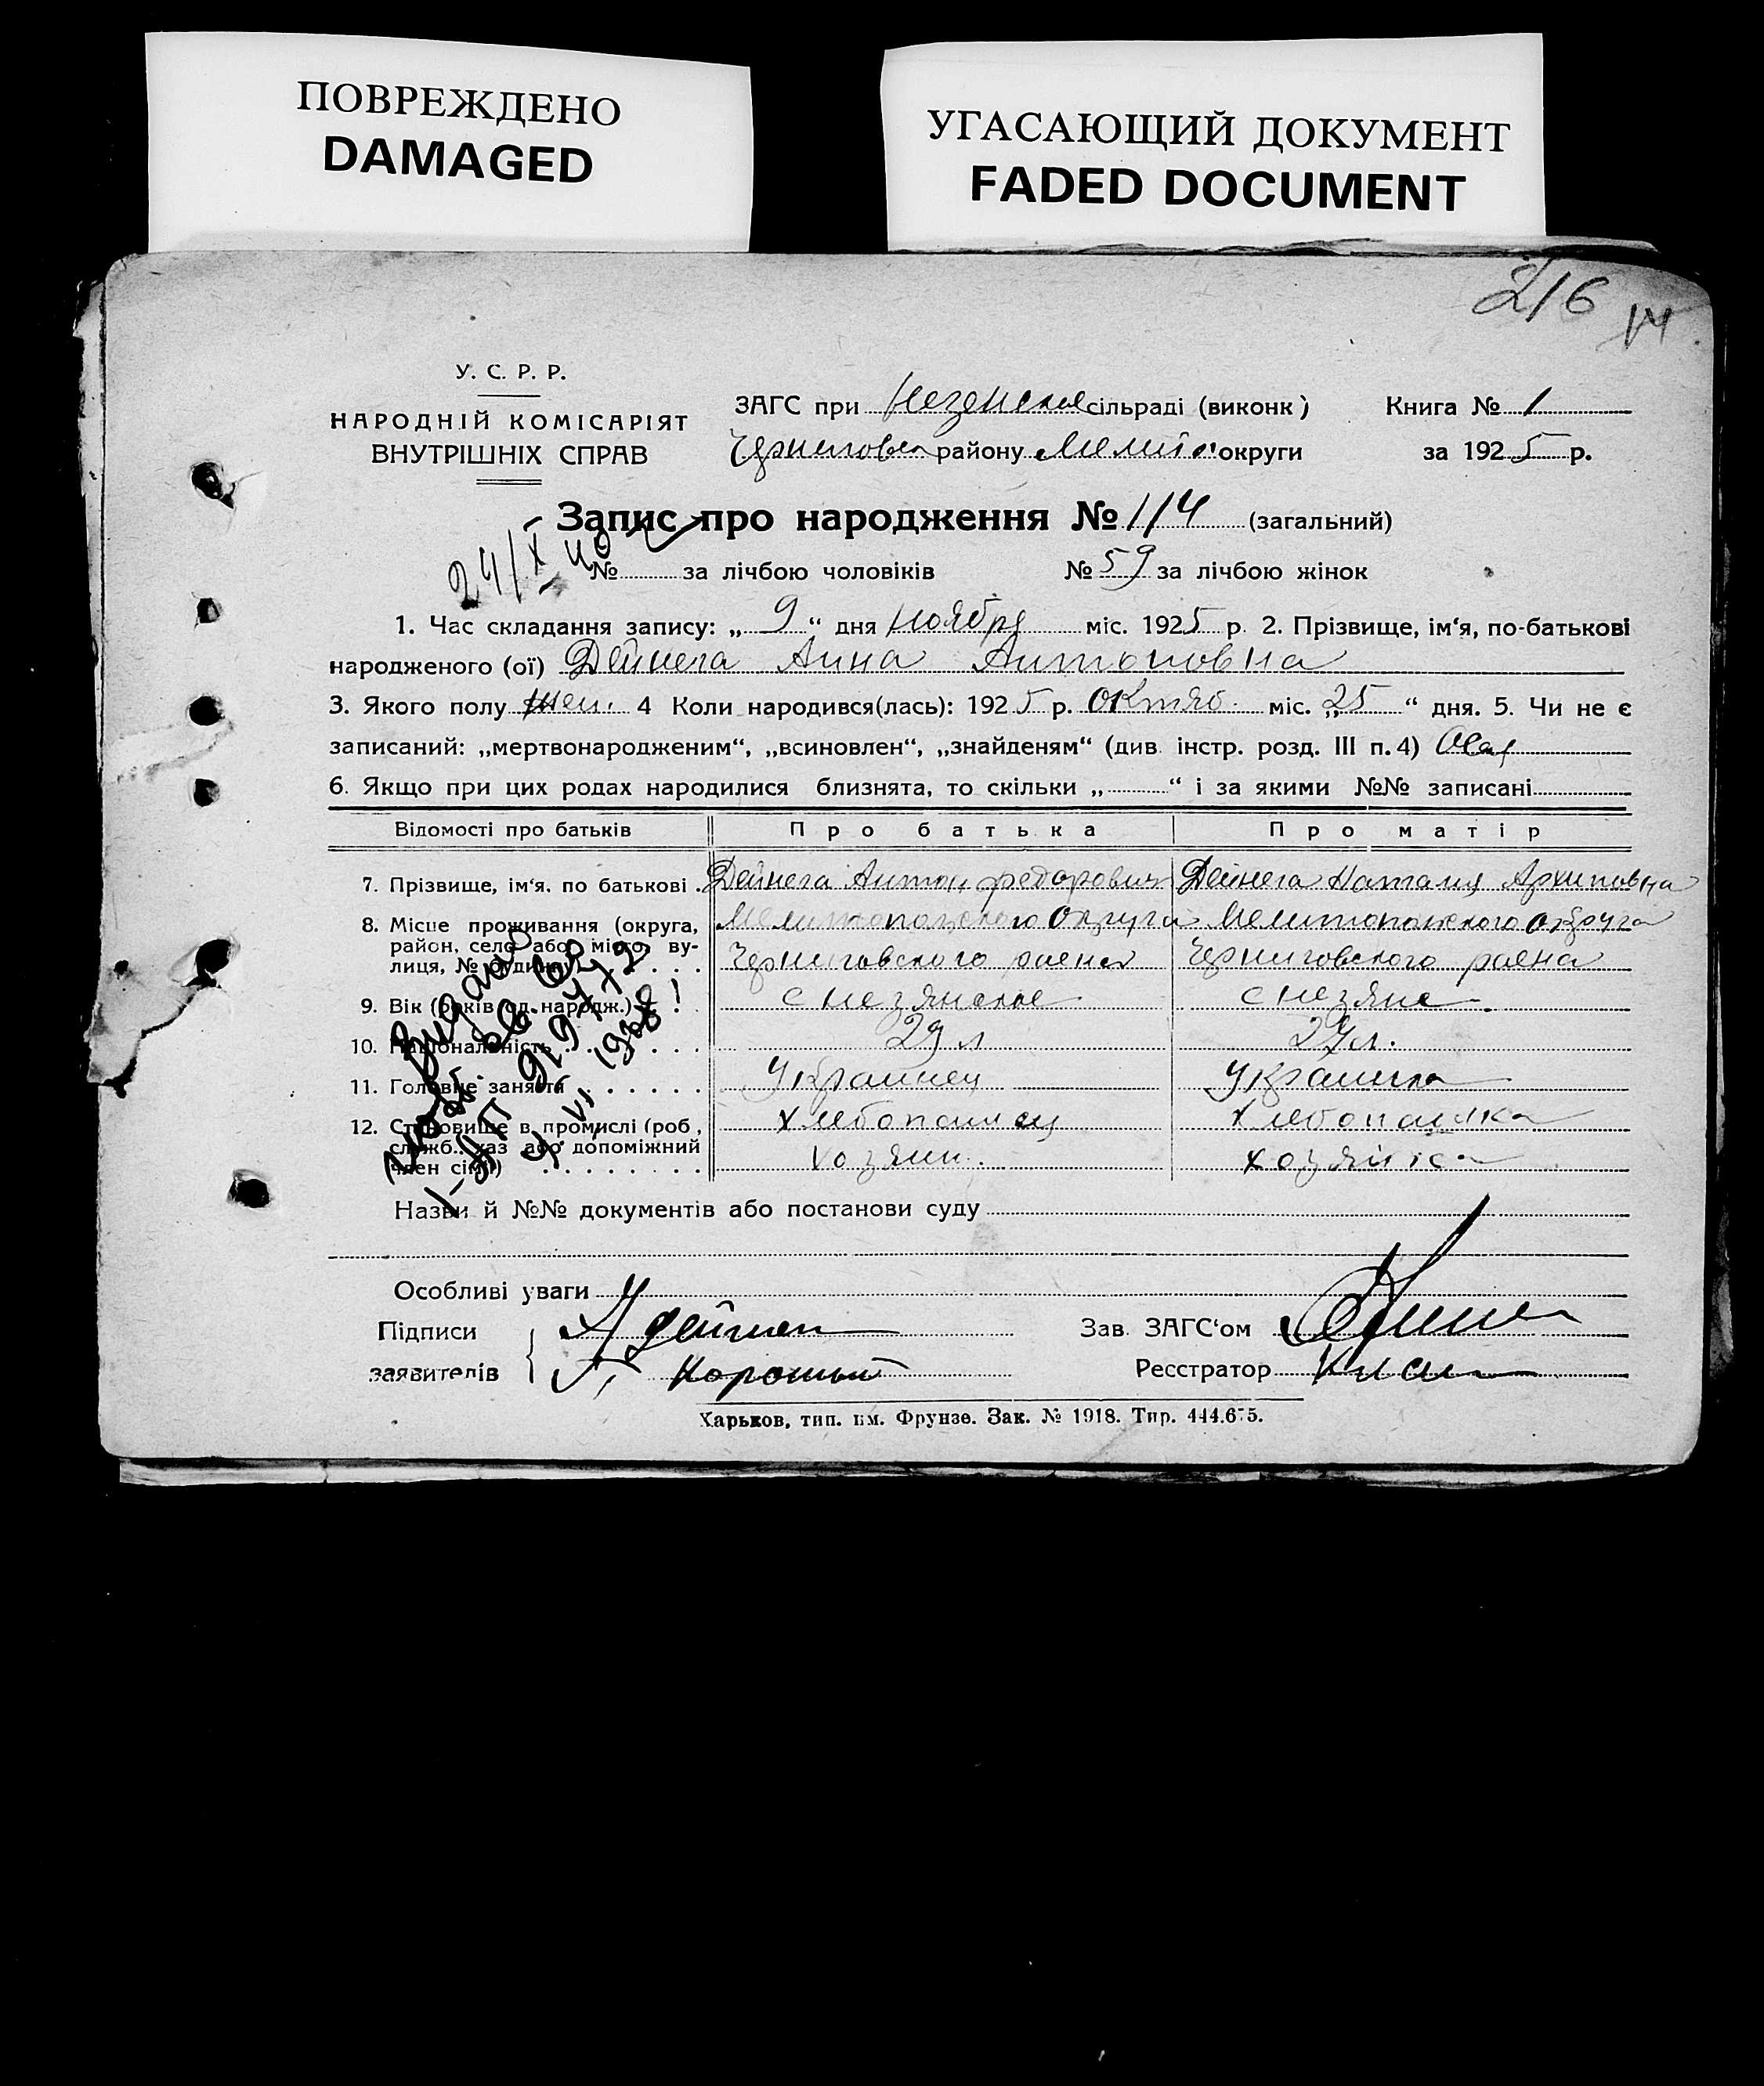 ПОВРЕЖДЕНО
DAMAGED
УГАСАЮЩИЙ ДОКУМЕНТ
FADED DOCUMENT
216
У. С. Р. Р.
НАРОДНІЙ КОМІСАРІЯТ
ВНУТРІШНІХ СПРАВ
ЗАГС при сільраді (виконк) Книга № 1
района району Мелит. округи за 1925 р.
Запис про народження № 114 (загальний)
24/X 40
№ за лічбою чоловіків № 59 за лічбою жінок
1. Час складання запису: „ 9 “ дня ноября міс. 1925 р. 2. Прізвище, ім‘я, по-батькові
народженого (ої) Дейнега Анна Антоновна
3. Якого полу жен. 4 Коли народився(лась): 1925 р. Октяб. міс. „ 25 “ дня. 5. Чи не є
записаний: „мертвонародженим“, „всиновлен“, „знайденям“ (див. інстр. розд. III п. 4)
6. Якщо при цих родах народилися близнята, то скільки „ “ і за якими №№ записані
Відомості про батьків Про батька Про матір
7. Прізвище, ім‘я, по батькові . Дейнега Антон Федорович Дейнега Наталия Архиповна
8. Місце проживання (округа, Мелитопольского Округа Мелитопольского Округа
район, село або місто, ву-
лиця, № будинку) . . . Черниговского раена Черниговского раена
9. Вік (років од народж.)
10. Національність . . . . . 29 л 29 л.
11. Головне заняття . . . . . . Украинец Украинка
12. Становище в промислі (роб, Хлебопашец Хлебопашка
служб., хаз або допоміжний
член сім‘ї) . . . . . . . . хозяин. хозяйка
Видано
919442
4. VI 1938
Назви й №№ документів або постанови суду
Особливі уваги
Підписи
заявителів
Зав. ЗАГС‘ом
Реєстратор
Харьков, тип. им. Фрунзе. Зак. № 1918. Тир. 444.675.